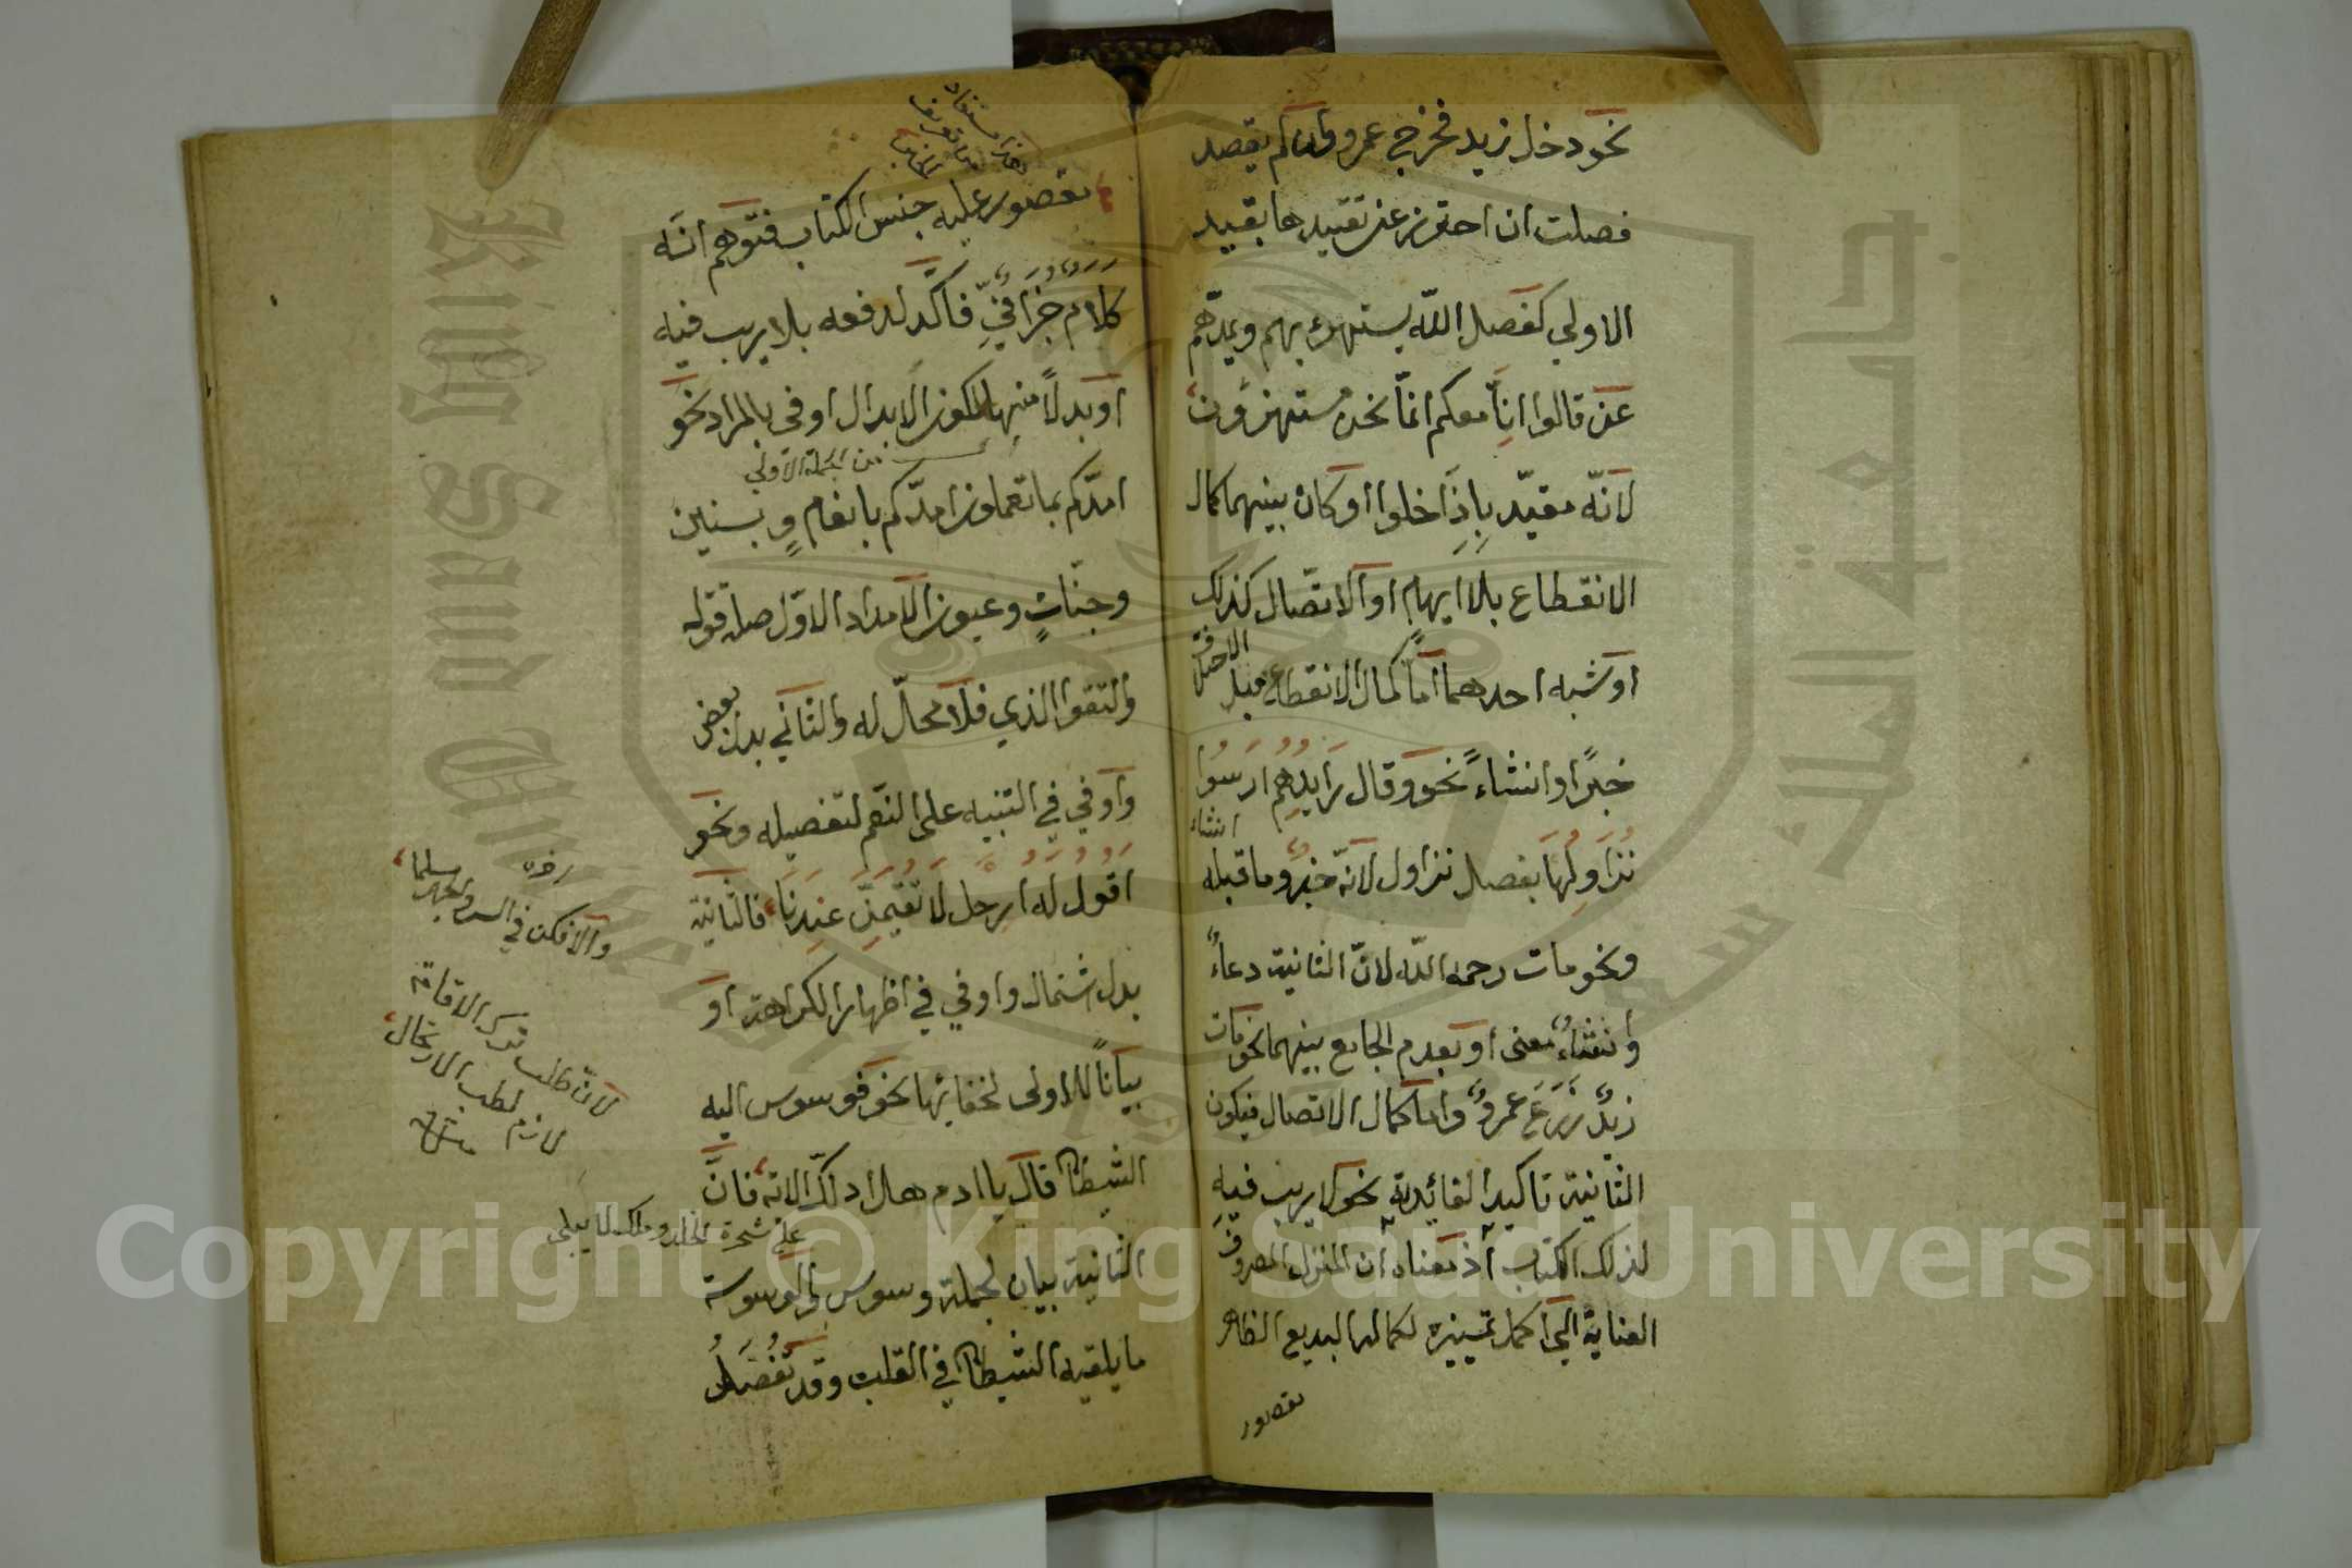 نحو دخل زيد فخرج عمرو وان لم يقصد
فصلت ان احترز عن تقييدها بقيد
الاولى كفصل الله يستهزئ بهم ويمدّهم
عن قالوا انّا معكم انمّا نحن مستهزؤن
لانّه مقيّد بِاِذَا خلوا او كان بينهما كمال
الانقطاع بلا ايهام او الاتّصال كذلك
او شبه احدهما امّا كمال الانقطاع فبا
الاختلاف
خبرًا وانشاءً نحو وقال رَايدُهُم اَرسُوا
نُزَاوِلُهَا بفصل نزاول لانّه خبرٌ وما قبله
انشاء
ونحو مات رحمه الله لانّ الثانية دعاءٌ
وانشاءٌ معنى او بعدم الجامع بينهما نحو مات
زيدٌ زَرَعَ عمروٌ وامّا كمال الاتصال فيكون
الثانية تاكيدا لفائدة نحو لا ريب فيه
لذلك الكتاب اذ معناه ان المنزل المصروف
العناية الى اكمل تمييزه لكماله البديع الظاهر
مقصور
مقصور عليه جنس الكتاب فتوهم انّه
كلام جُزَافيٌّ فاكّد لدفعه بلا ريب فيه
او بدلًا منها لكون الابدال اوفى بالمراد نحو
من الجملة الاولى
امدّكم بما تعملون امدّكم بانعامٍ وبنين
وجنّاتٍ وعيون الامداد الاوّل صلة قوله
واتقوا الذي فلا محلّ له والثاني بدل بعض
واوفي في التنبيه على النعم لتفصيله ونحو
اقول له ارحل لَا تُقيمَنَّ عندنا فالثانية
بدل اشتمال واوفي في اظهار الكراهة او
بيانًا للاولى لخفائها نحو فوسوس اليه
الشيطان قال يا ادم هل ادلّك الاية فانّ
على شجرة الخلد وملك لا يبلى
الثانية بيان لجملة وسوس والوسوسة
ما يلقيه الشيطان في القلب وقد تُفصَلُ
اخره
والا فكن في السر والجهر مسلما
لانّ طلب ترك الاقامة
لازم لطلب الارتحال